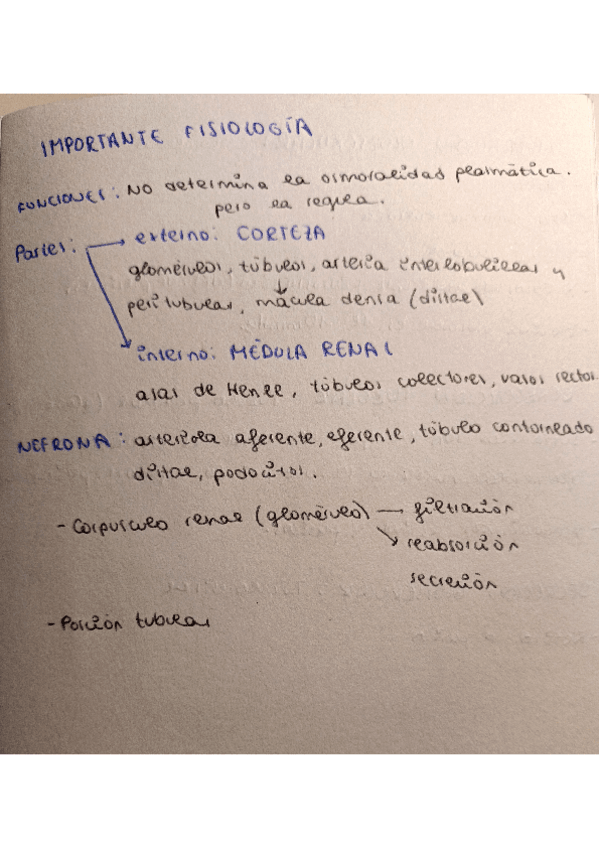 IMPORTANTE FISIOLOGÍA
FUNCIONES: NO determina la osmoralidad plasmática.
pero la regula.
Partes: → externo: CORTEZA
glomérulos, túbulos, arteria interlobulillar y
peritubular, mácula densa (distal)
interno: MÉDULA RENAL
asas de Henle, túbulos colectores, vasos rectos
NEFRONA: arteriola aferente, eferente, túbulo contorneado
distal, podocitos.
- Corpúsculo renal (glomérulo) → filtración
reabsorción
secreción
- Porción tubular